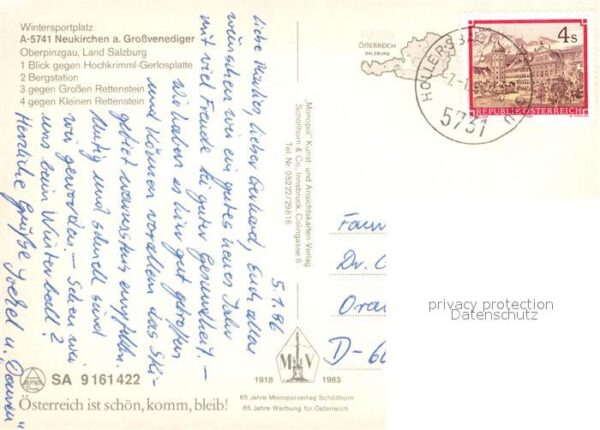 Wintersportplatz
A-5741 Neukirchen a. Großvenediger
Oberpinzgau, Land Salzburg
1 Blick gegen Hochkrimml-Gerlosplatte
2 Bergstation
3 gegen Großen Rettenstein
4 gegen Kleinen Rettenstein
5.1.86
lieber Gerhard, Euch allen
wünschen wir ein gutes neues Jahr
mit viel Freude bei guter Gesundheit. –
Wir haben es hier gut getroffen
und können vor allem das Ski-
gebiet wärmstens empfehlen.
Mutig und schnell sind
wir geworden. – Sehen wir
uns beim Winterball?
Herzliche Grüße
SA 9161422
Österreich ist schön, komm, bleib!
Monopol Kunst- und Ansichtskarten-Verlag
Schöllhorn & Co., Innsbruck, Colingasse 6
Tel. Nr. 05222/29816
M V
1918 1983
65 Jahre Monopolverlag Schöllhorn
65 Jahre Werbung für Österreich
ÖSTERREICH
SALZBURG
5731
4 s
REPUBLIK ÖSTERREICH
Dr.
D-6
privacy protection
Datenschutz